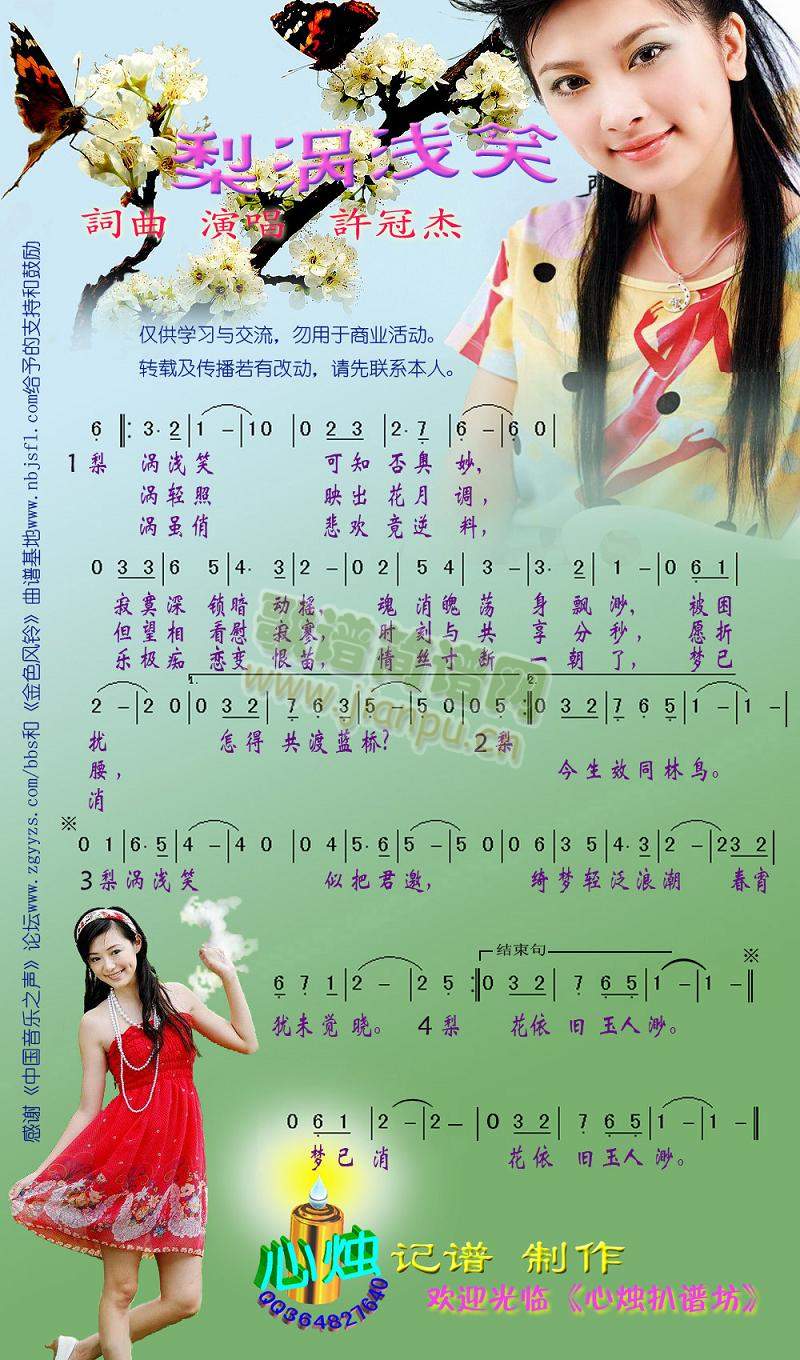 梨涡浅笑
詞曲 演唱 許冠杰
仅供学习与交流，勿用于商业活动。
转载及传播若有改动，请先联系本人。
感谢《中国音乐之声》论坛www.zgyyzs.com/bbs和《金色风铃》曲谱基地www.nbjsfl.com给予的支持和鼓励
6 ‖: 3· 2 | 1 - | 1 0 | 0 2 3 | 2· 7 | 6 - | 6 0 |
1梨 涡浅笑 可知否奥妙，
涡轻照 映出花月调，
涡虽俏 悲欢竟逆料，
0 3 3 | 6 5 | 4· 3 | 2 - | 0 2 | 5 4 | 3 - | 3· 2 | 1 - | 0 6 1 |
寂寞深锁暗动摇， 魂消魄荡身飘渺， 被困
但望相看慰寂寥， 时刻与共享分秒， 愿折
乐极痴恋变恨苗， 情丝寸断一朝了， 梦已
1. 2.
2 - | 2 0 | 0 3 2 | 7 6 3 | 5 - | 5 0 | 0 5 :‖ 0 3 2 | 7 6 5 | 1 - | 1 - |
扰 怎得共渡蓝桥？ 2梨
腰， 今生效同林鸟。
消
※
0 1 | 6· 5 | 4 - | 4 0 | 0 4 | 5· 6 | 5 - | 5 0 | 0 6 | 3 5 | 4· 3 | 2 - | 2 3 2 |
3梨涡浅笑 似把君邀， 绮梦轻泛浪潮 春宵
结束句 ※
6 7 1 | 2 - | 2 5 :‖ 0 3 2 | 7 6 5 | 1 - | 1 - ‖
犹未觉晓。 4梨 花依旧玉人渺。
0 6 1 | 2 - | 2 - | 0 3 2 | 7 6 5 | 1 - | 1 - ‖
梦已消 花依旧玉人渺。
歌谱简谱网
www.jianpu.cn
心烛 记谱 制作
QQ364827640
欢迎光临《心烛扒谱坊》